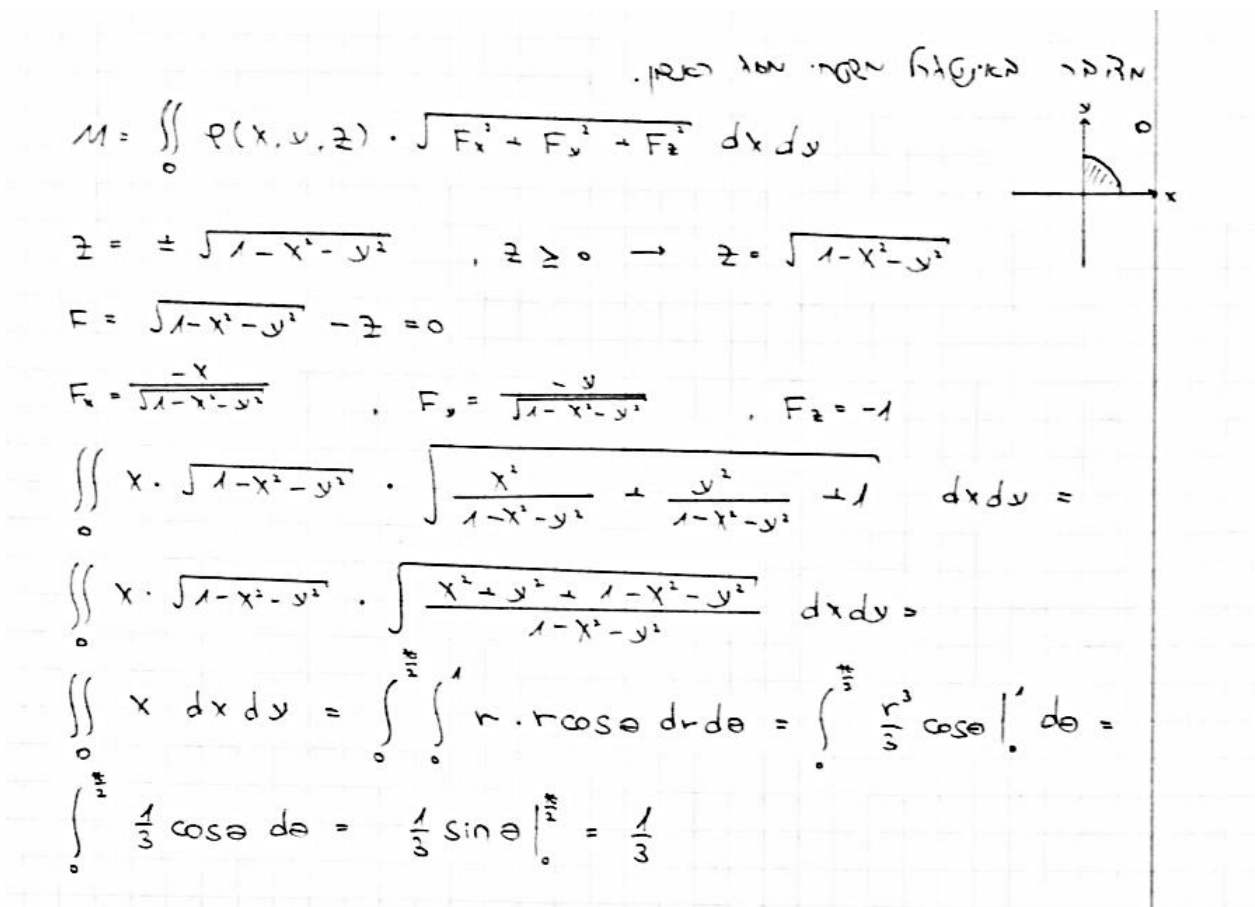 מדובר באינטגרל משטחי מסוג ראשון.
M = ∬_D ρ(x,y,z) · √(F_x² + F_y² + F_z²) dx dy
y
D
x
z = ± √(1-x²-y²) , z ≥ 0 → z = √(1-x²-y²)
F = √(1-x²-y²) - z = 0
F_x = -x/√(1-x²-y²) , F_y = -y/√(1-x²-y²) , F_z = -1
∬_D x · √(1-x²-y²) · √(x²/(1-x²-y²) + y²/(1-x²-y²) + 1) dx dy =
∬_D x · √(1-x²-y²) · √((x² + y² + 1-x²-y²)/(1-x²-y²)) dx dy =
∬_D x dx dy = ∫_0^{π/2} ∫_0^1 r · r cosθ dr dθ = ∫_0^{π/2} r³/3 cosθ |_0^1 dθ =
∫_0^{π/2} 1/3 cosθ dθ = 1/3 sinθ |_0^{π/2} = 1/3